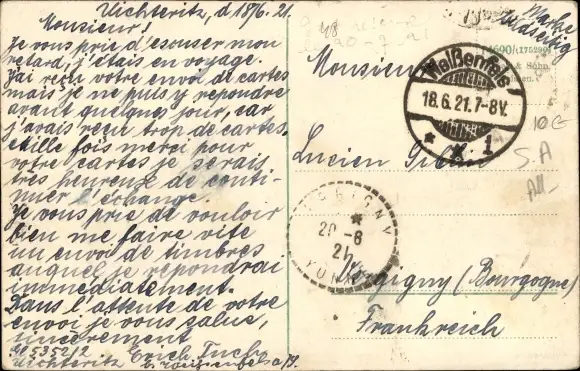 Uichteritz, d 18/6. 21.
Monsieur!
Je vous prie d'escuser mon
retard, j'étais en voyage.
J'ai reçu votre envoi de cartes
mais je ne puis y répondre
avant quelques jour, car
j'avais reçu trop de cartes.
Mille fois merci pour
votre cartes je serais
très heureuse de conti-
nuer l'échange.
Je vous prie de vouloir
bien me faire vite
un envoi de timbres
auquel je répondrai
immédiatement.
Dans l'attente de votre
envoi je vous salue,
sincerement
Erich Fuchs
Uichteritz b. Weissenfels a/S.
Marke
Monsieur
Lucien
(Bourgogne)
Frankreich
Weißenfels
18.6.21.7-8V.
* * 1
20-6
21
48
10 E
S.A
All-